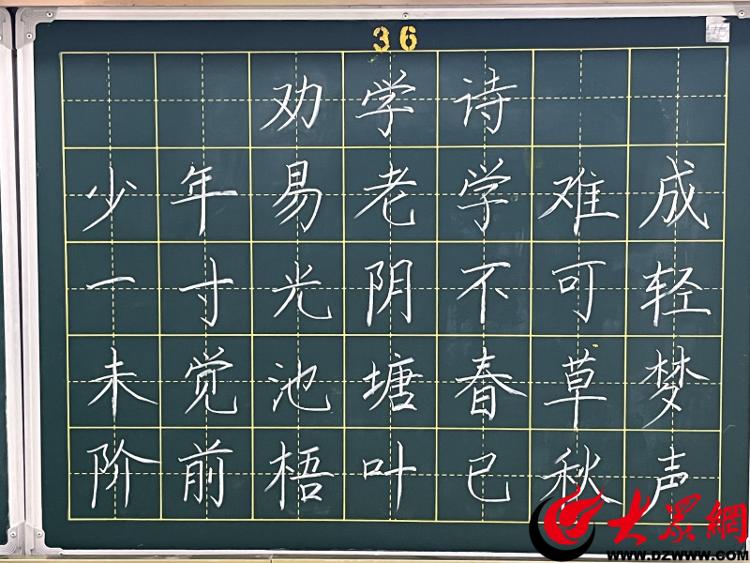 36
劝学诗
少年易老学难成
一寸光阴不可轻
未觉池塘春草梦
阶前梧叶已秋声
大眾網
WWW.DZWWW.COM